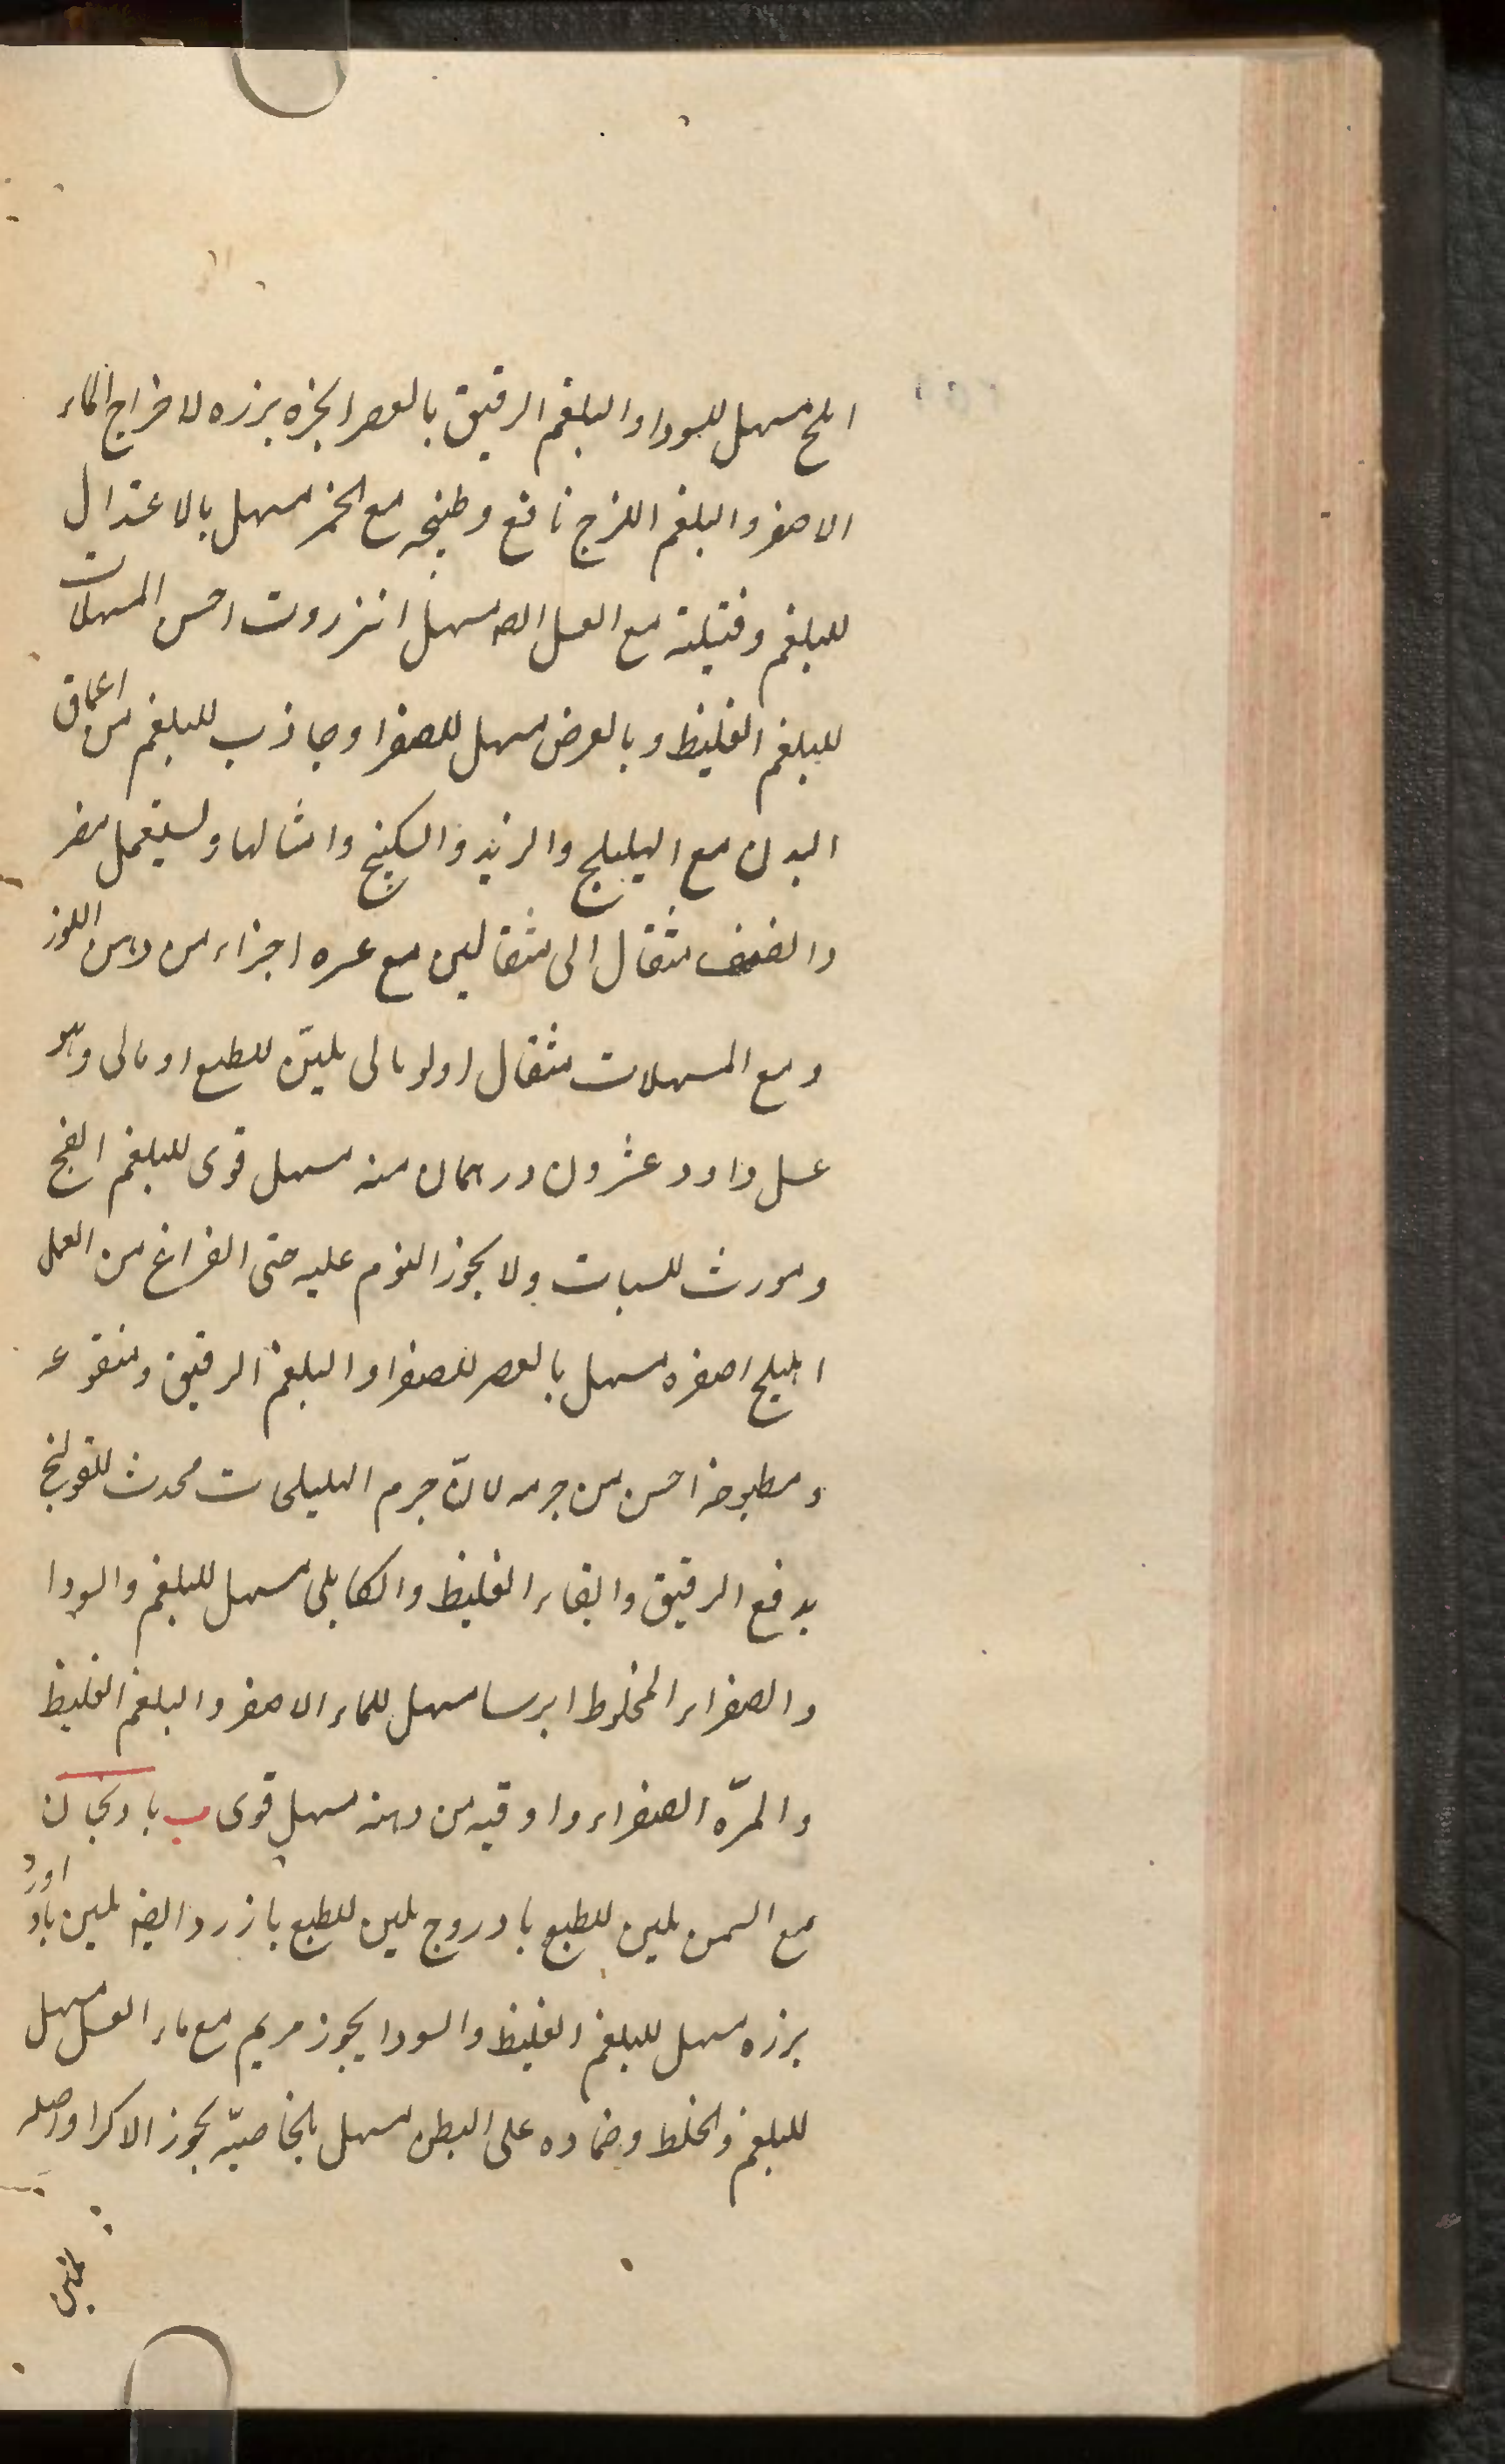 املج مسهل للسودا والبلغم الرقيق بالعصر انجره بزره لاخراج الماء
الاصفر والبلغم اللزج نافع وطبخه مع الخمر مسهل بالاعتدال
للبلغم وفتيلته مع العسل مسهل انزروت احسن المسهلات
للبلغم الغليظ وبالعرض مسهل للصفرا وجاذب للبلغم من اعماق
البدن مع الهليلج والزبد والسكبنج وامثالها ويستعمل
مثقال الى مثقالين مع اجزاء من دهن اللوز
ومع المسهلات مثقال اولومالى ملين للطبع اومالى وهو
عسل داود عشرون درهمان منه مسهل قوى للبلغم الفج
ومورث للسبات ولا يجوز النوم عليه حتى الفراغ من العمل
اهليلج اصفره مسهل بالعصر للصفرا والبلغم الرقيق ومنقوعه
ومطبوخه احسن من جرمه لانّ جرم الهليلجات محدث للقولنج
بدفع الرقيق وابقاء الغليظ والكابلى مسهل للبلغم والسودا
والصفراء المخلوط ايرسا مسهل للماء الاصفر والبلغم الغليظ
والمرّه الصفراء واوقيه من دهنه مسهل قوى ب بادنجان
مع السمن ملين للطبع بادروج ملين للطبع بازرد ايضا ملين باداورد
بزره مسهل للبلغم الغليظ والسودا بخور مريم مع ماء العسل مسهل
للبلغم والخلط وضماده على البطن مسهل بالخاصيّه بخور الاكراد اصله